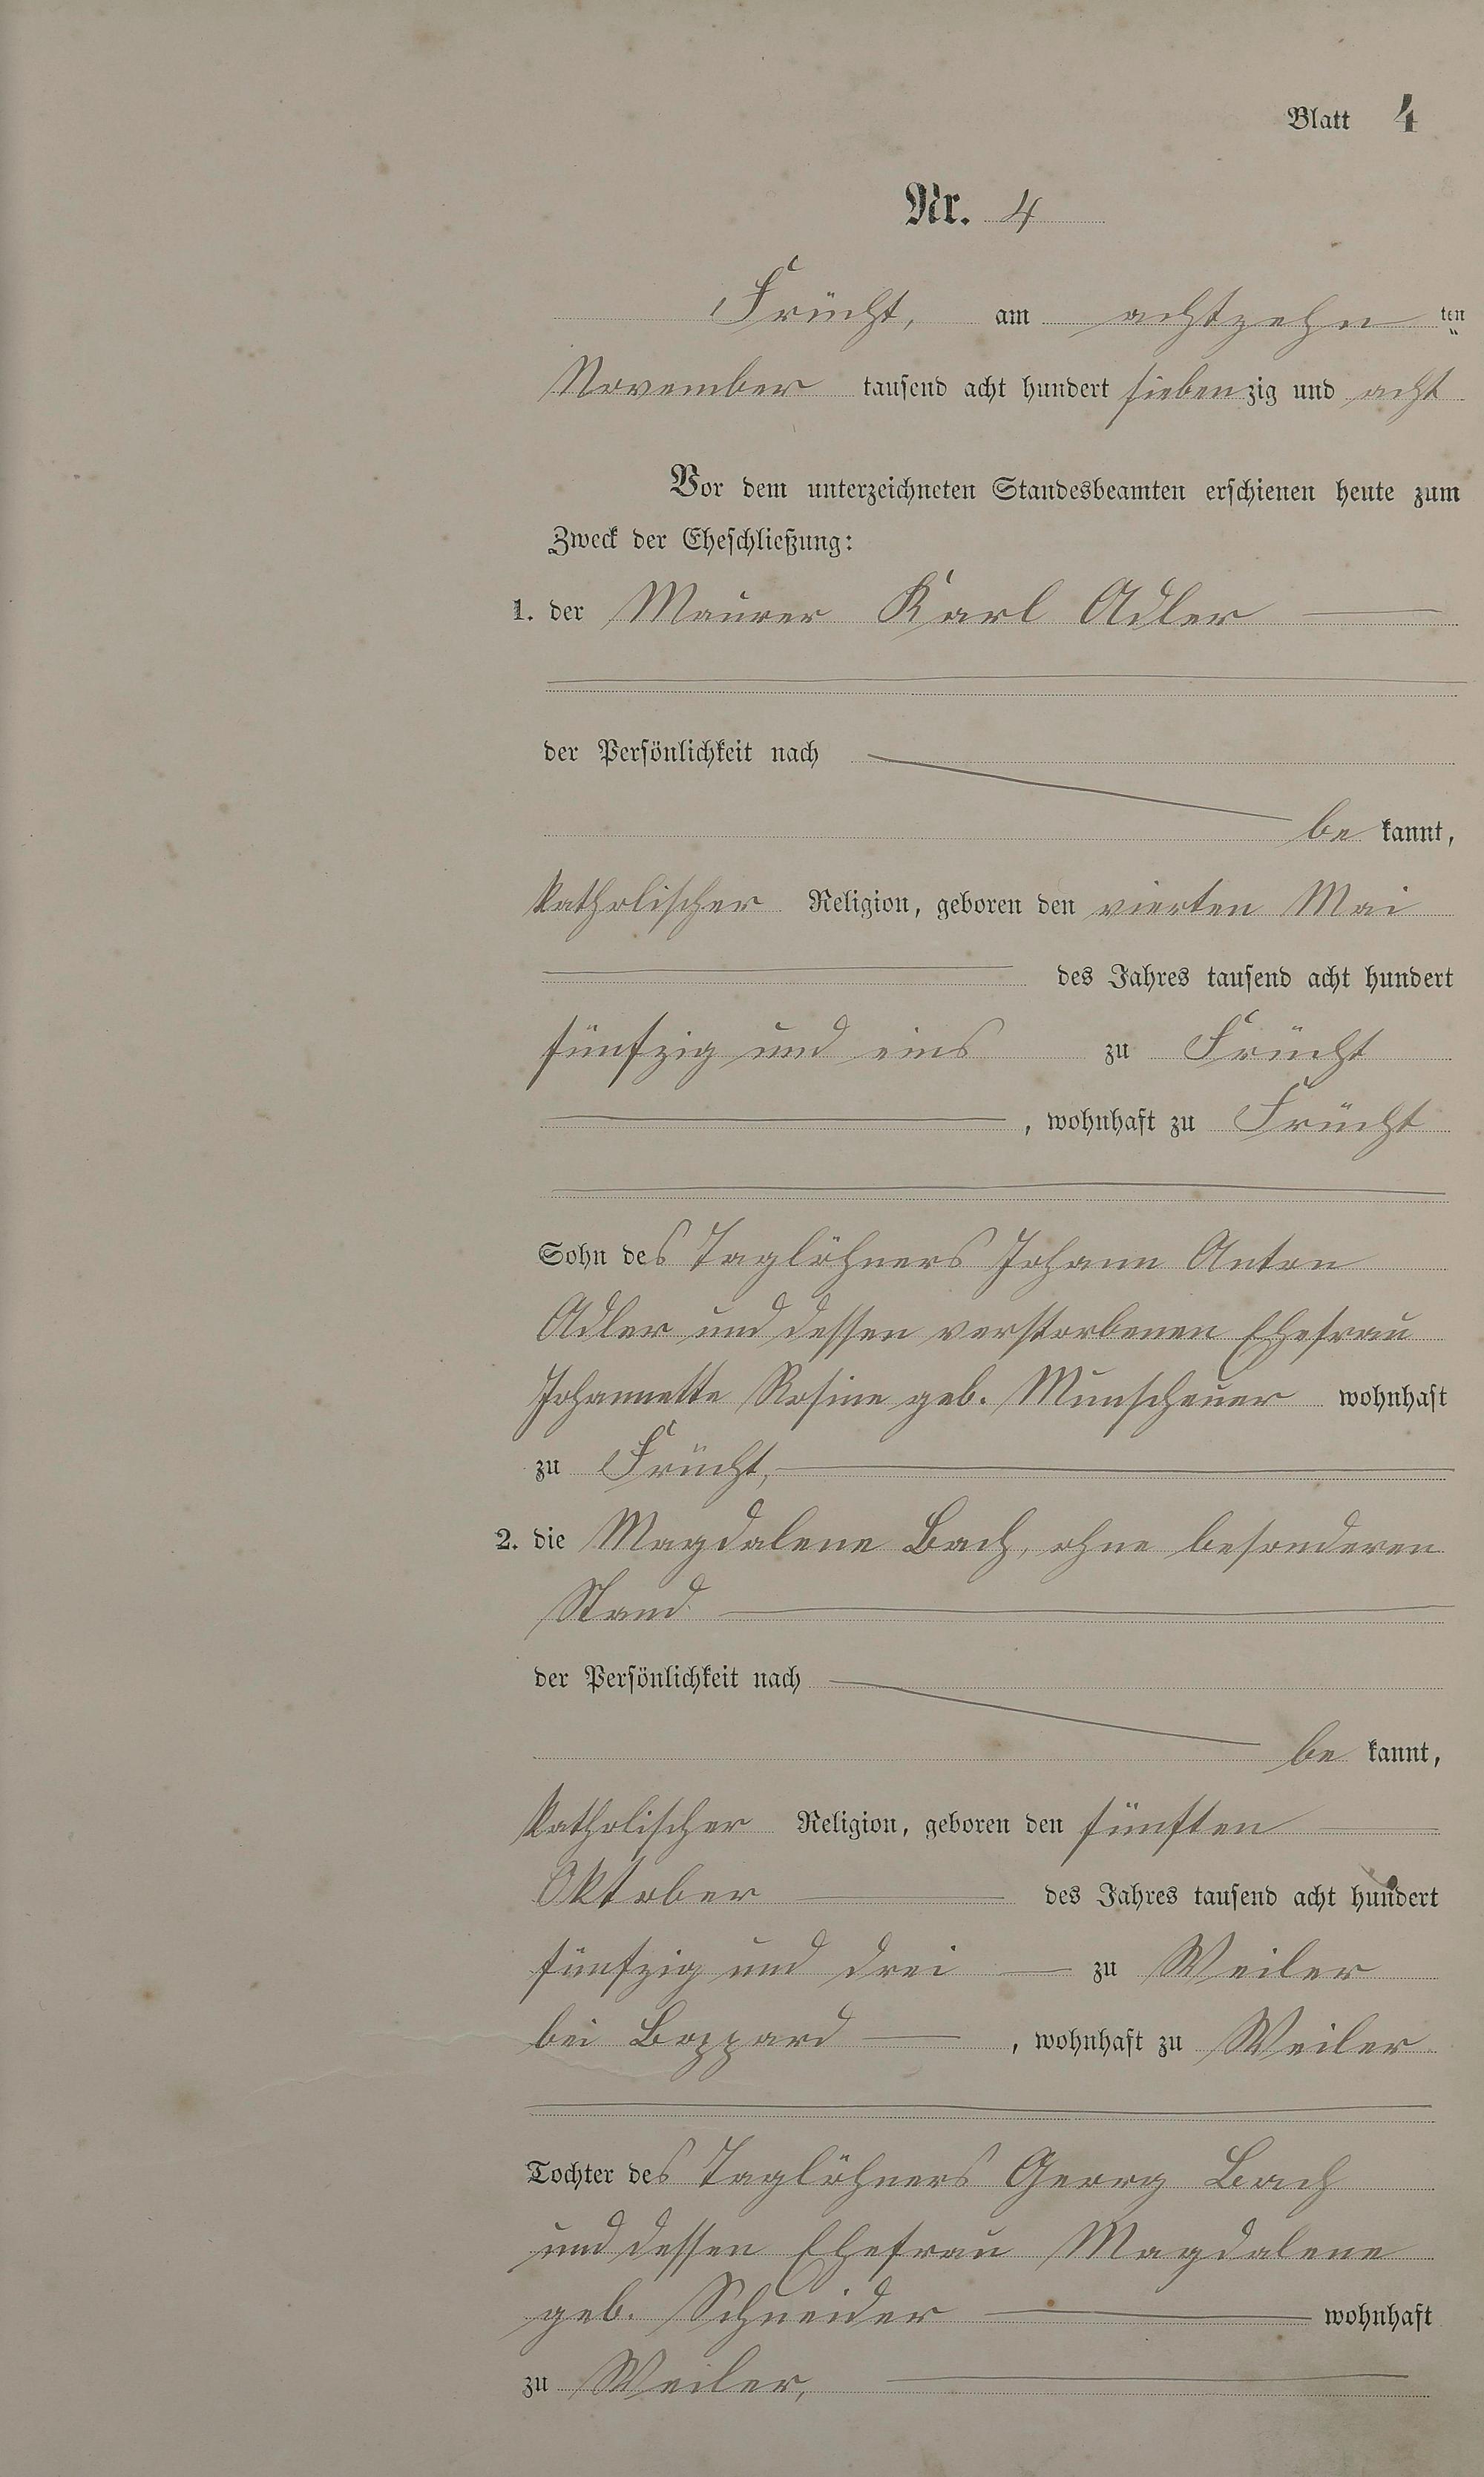 Blatt 4
Nr. 4
Frücht, am achtzehn ten
November tausend acht hundert siebenzig und acht
Vor dem unterzeichneten Standesbeamten erschienen heute zum
Zweck der Eheschließung:
1. der Maurer Karl Adler
der Persönlichkeit nach
be kannt,
katholischer Religion, geboren den vierten Mai
des Jahres tausend acht hundert
fünfzig und eins zu Frücht
, wohnhaft zu Frücht
Sohn des Taglöhners Johann Anton
Adler und dessen verstorbenen Ehefrau
Johannette Rosine geb. Munscheuer wohnhaft
zu Frücht,
2. die Magdalene Bach, ohne besonderen
Stand
der Persönlichkeit nach
be kannt,
katholischer Religion, geboren den fünften
Oktober des Jahres tausend acht hundert
fünfzig und drei zu Weiler
bei Boppard , wohnhaft zu Weiler
Tochter des Taglöhners Georg Bach
und dessen Ehefrau Magdalene
geb. Schneider wohnhaft
zu Weiler,